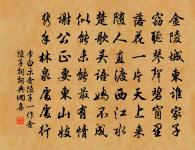 金陵城東誰家子
竊聽琴聲碧窗里
落花一片天上來
隨人直渡西江水
楚歌吳語嬌不成
似能未能最有情
謝公正要東山妓
攜手林泉處處行
李白示金陵子一作金
陵子詞詞典網書